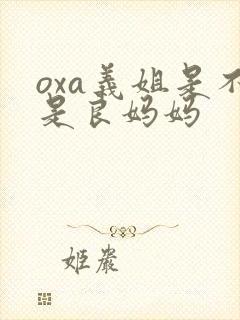 oxa義姐是不
是良妈妈
姬嚴